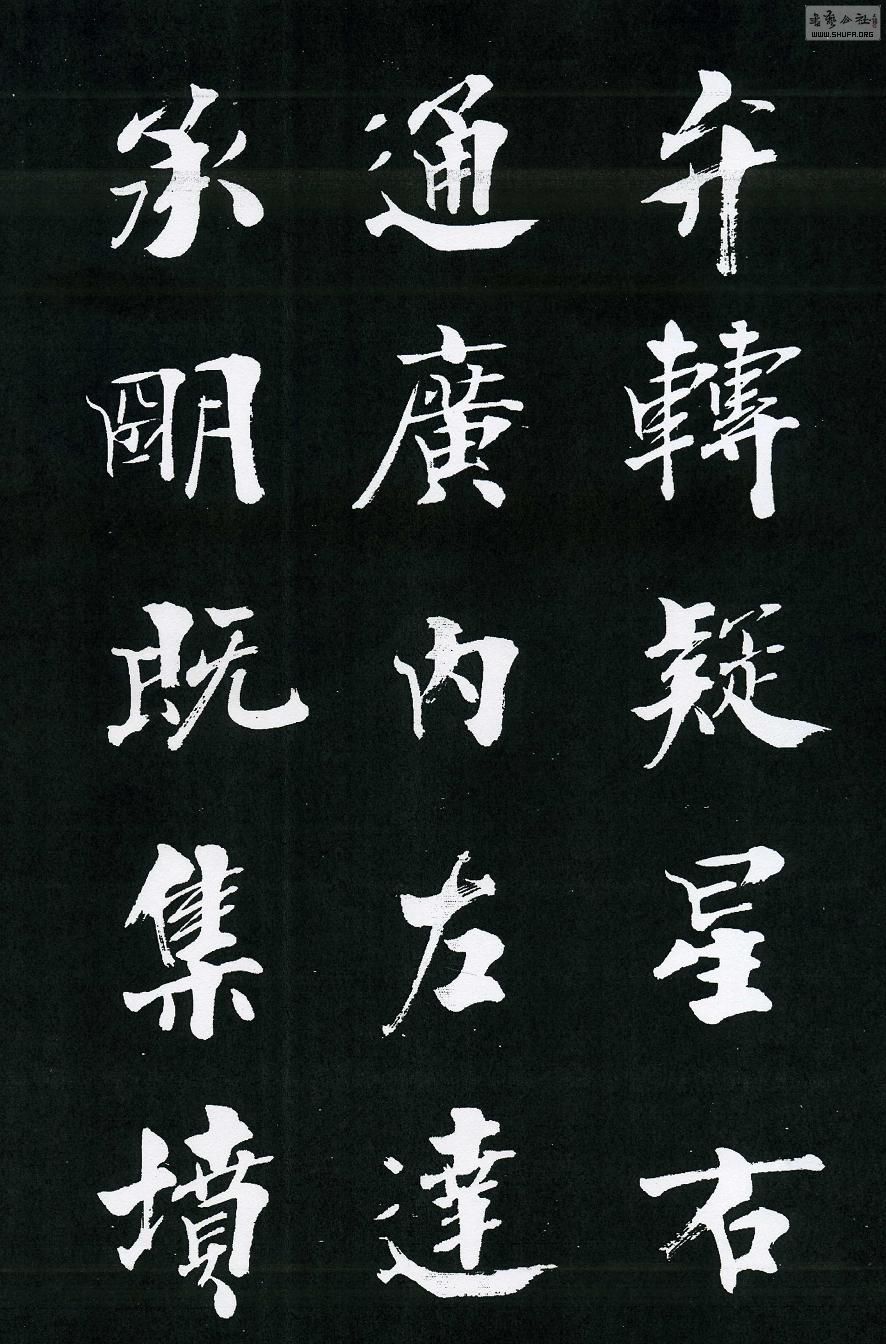 弁轉疑星右
通廣內左達
承明既集墳
書藝公社
WWW.SHUFA.ORG